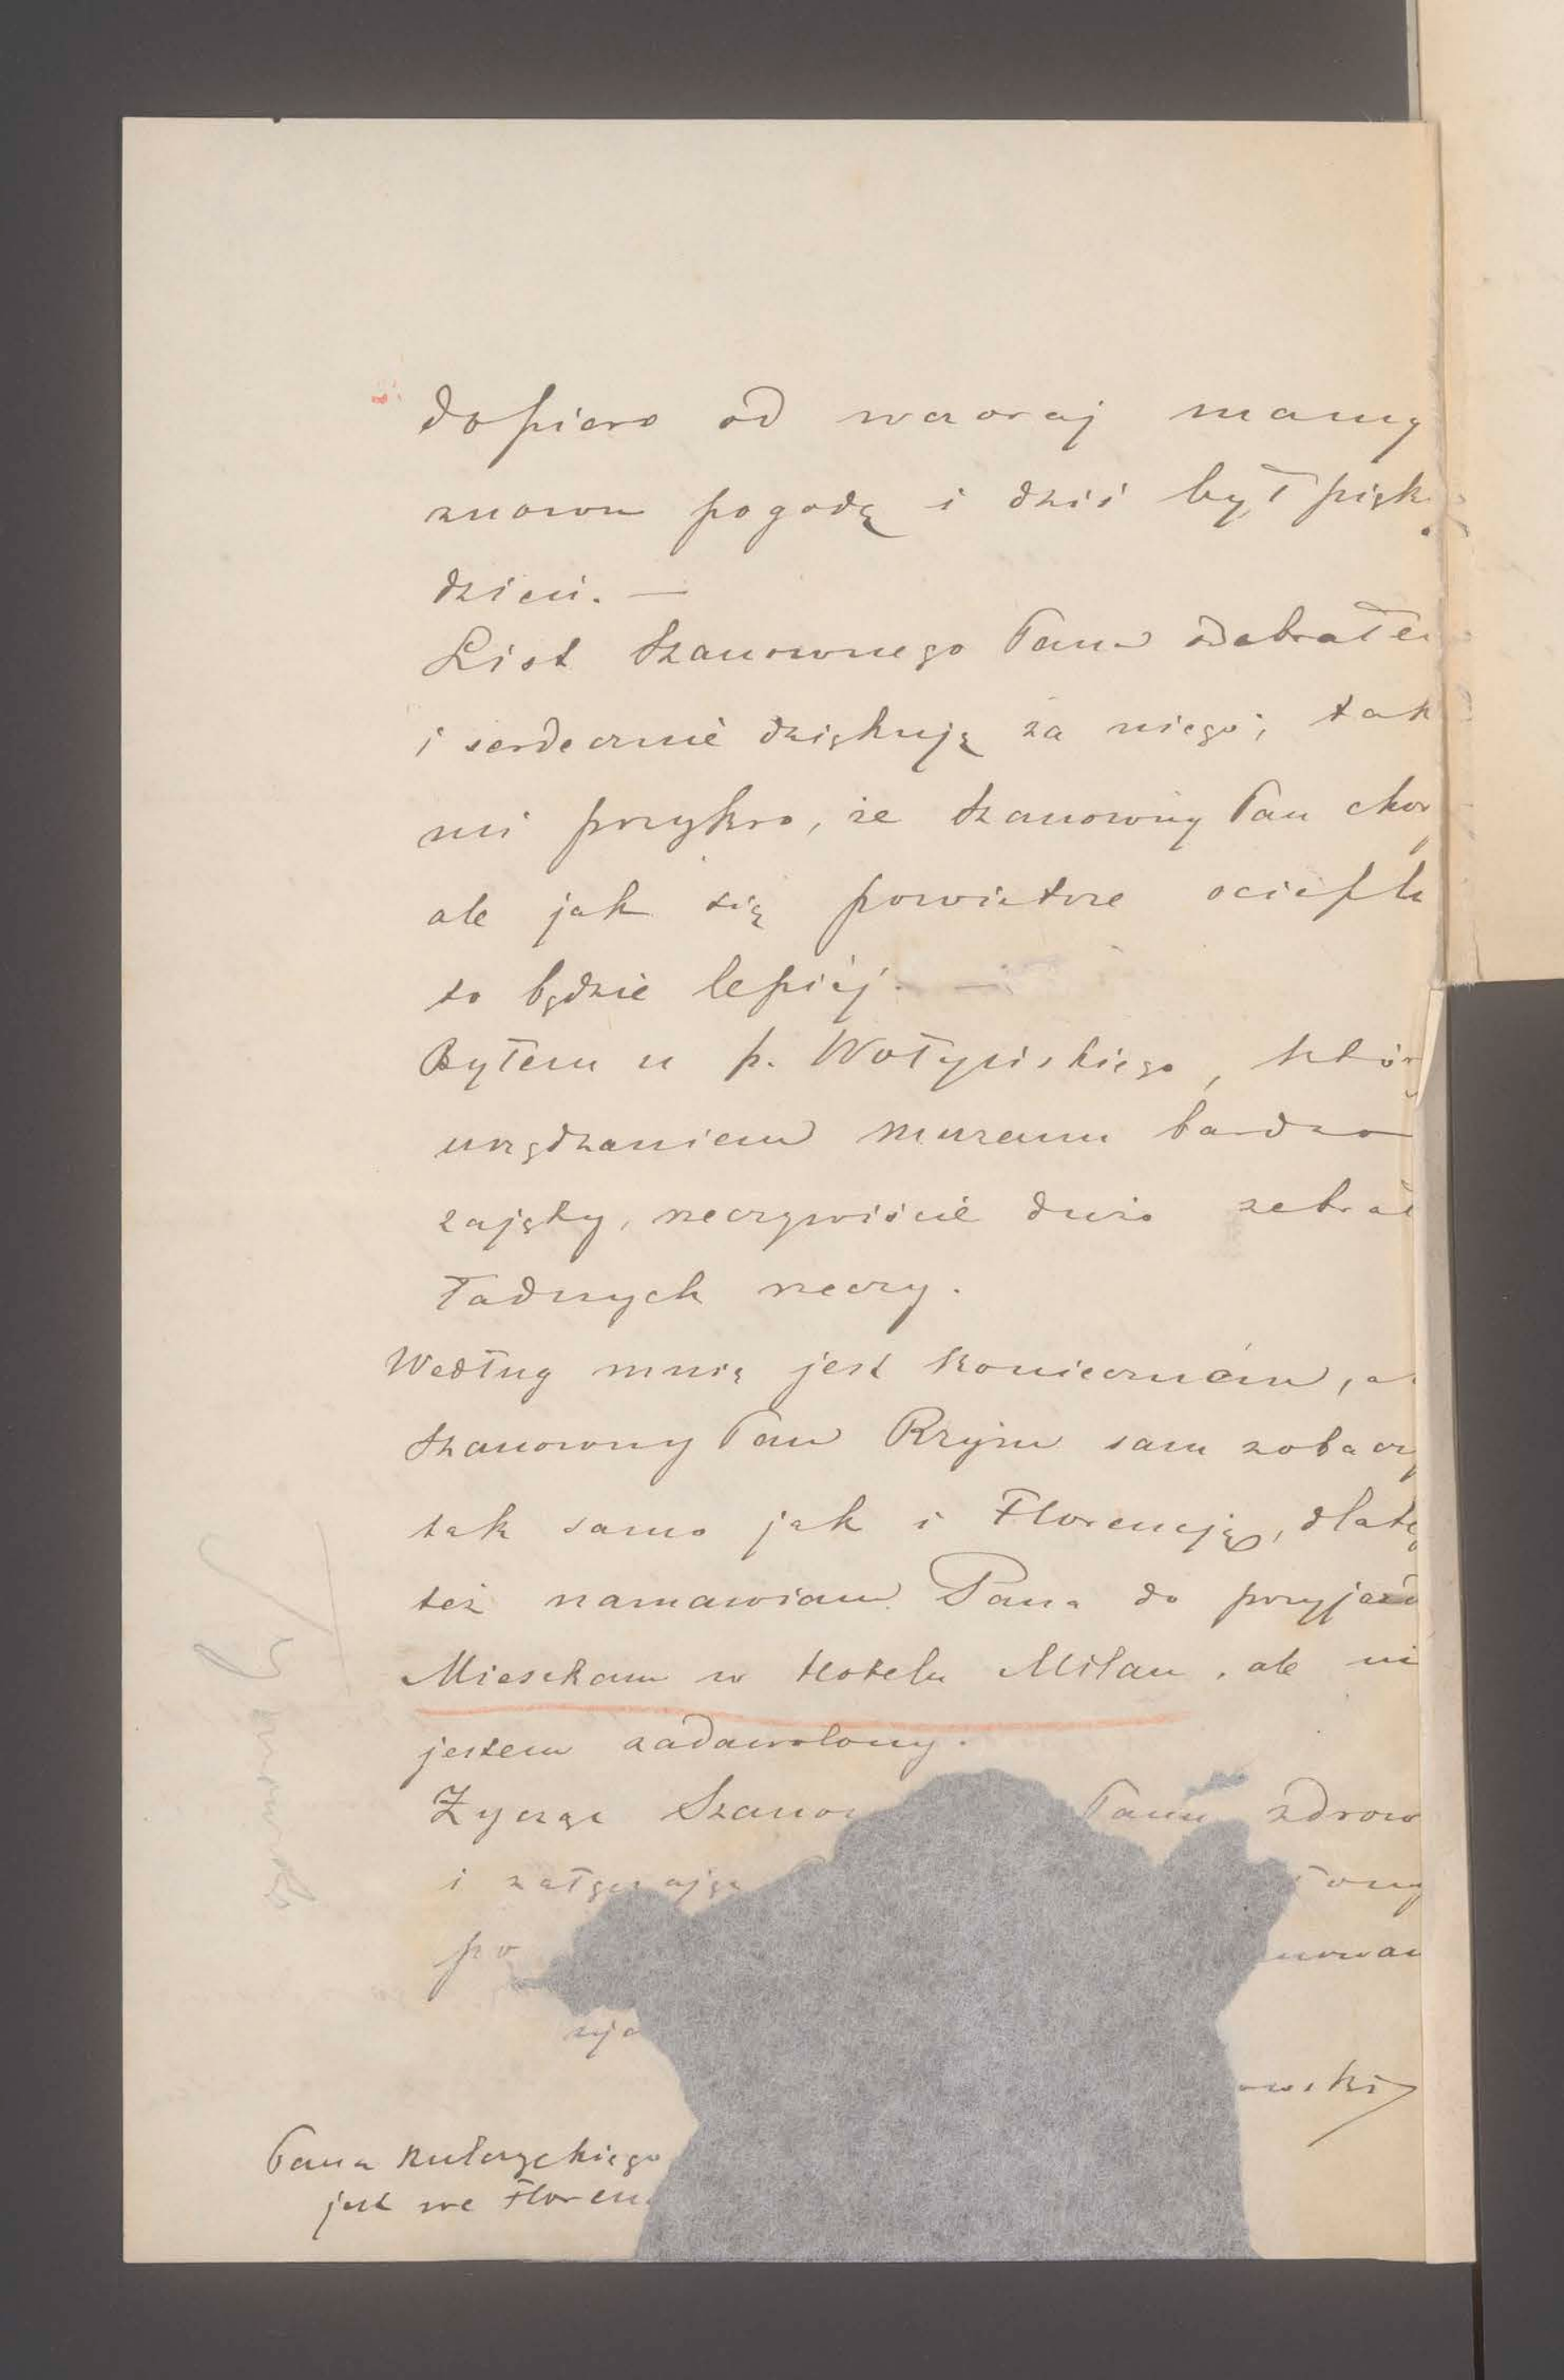 dopiero od wczoraj mamy
znowu pogodę i dziś był pięk
dzień. —
List Szanownego Pana odebrałe
i serdecznie dziękuję za niego; tak
mi przykro, że Szanowny Pan chory
ale jak się powietrze ociepli
to będzie lepiéj. —
Byłem u p. Wołyńskiego, któr
urządzaniem muzeum bardzo
zajęty, rzeczywiście dużo zebrał
ładnych rzeczy.
Według mnie jest koniecznem, a
Szanowny Pan Rzym sam zobaczy
tak samo jak i Florencję, dlateg
też namawiam Pana do przyjazd
Mieszkam w Hotelu Milan, ale ni
jestem zadawolony.
Życząc Szanow Panu zdrow
i załączając łony
po nowan
owski
Pana Kulczyckiego
jest we Floren